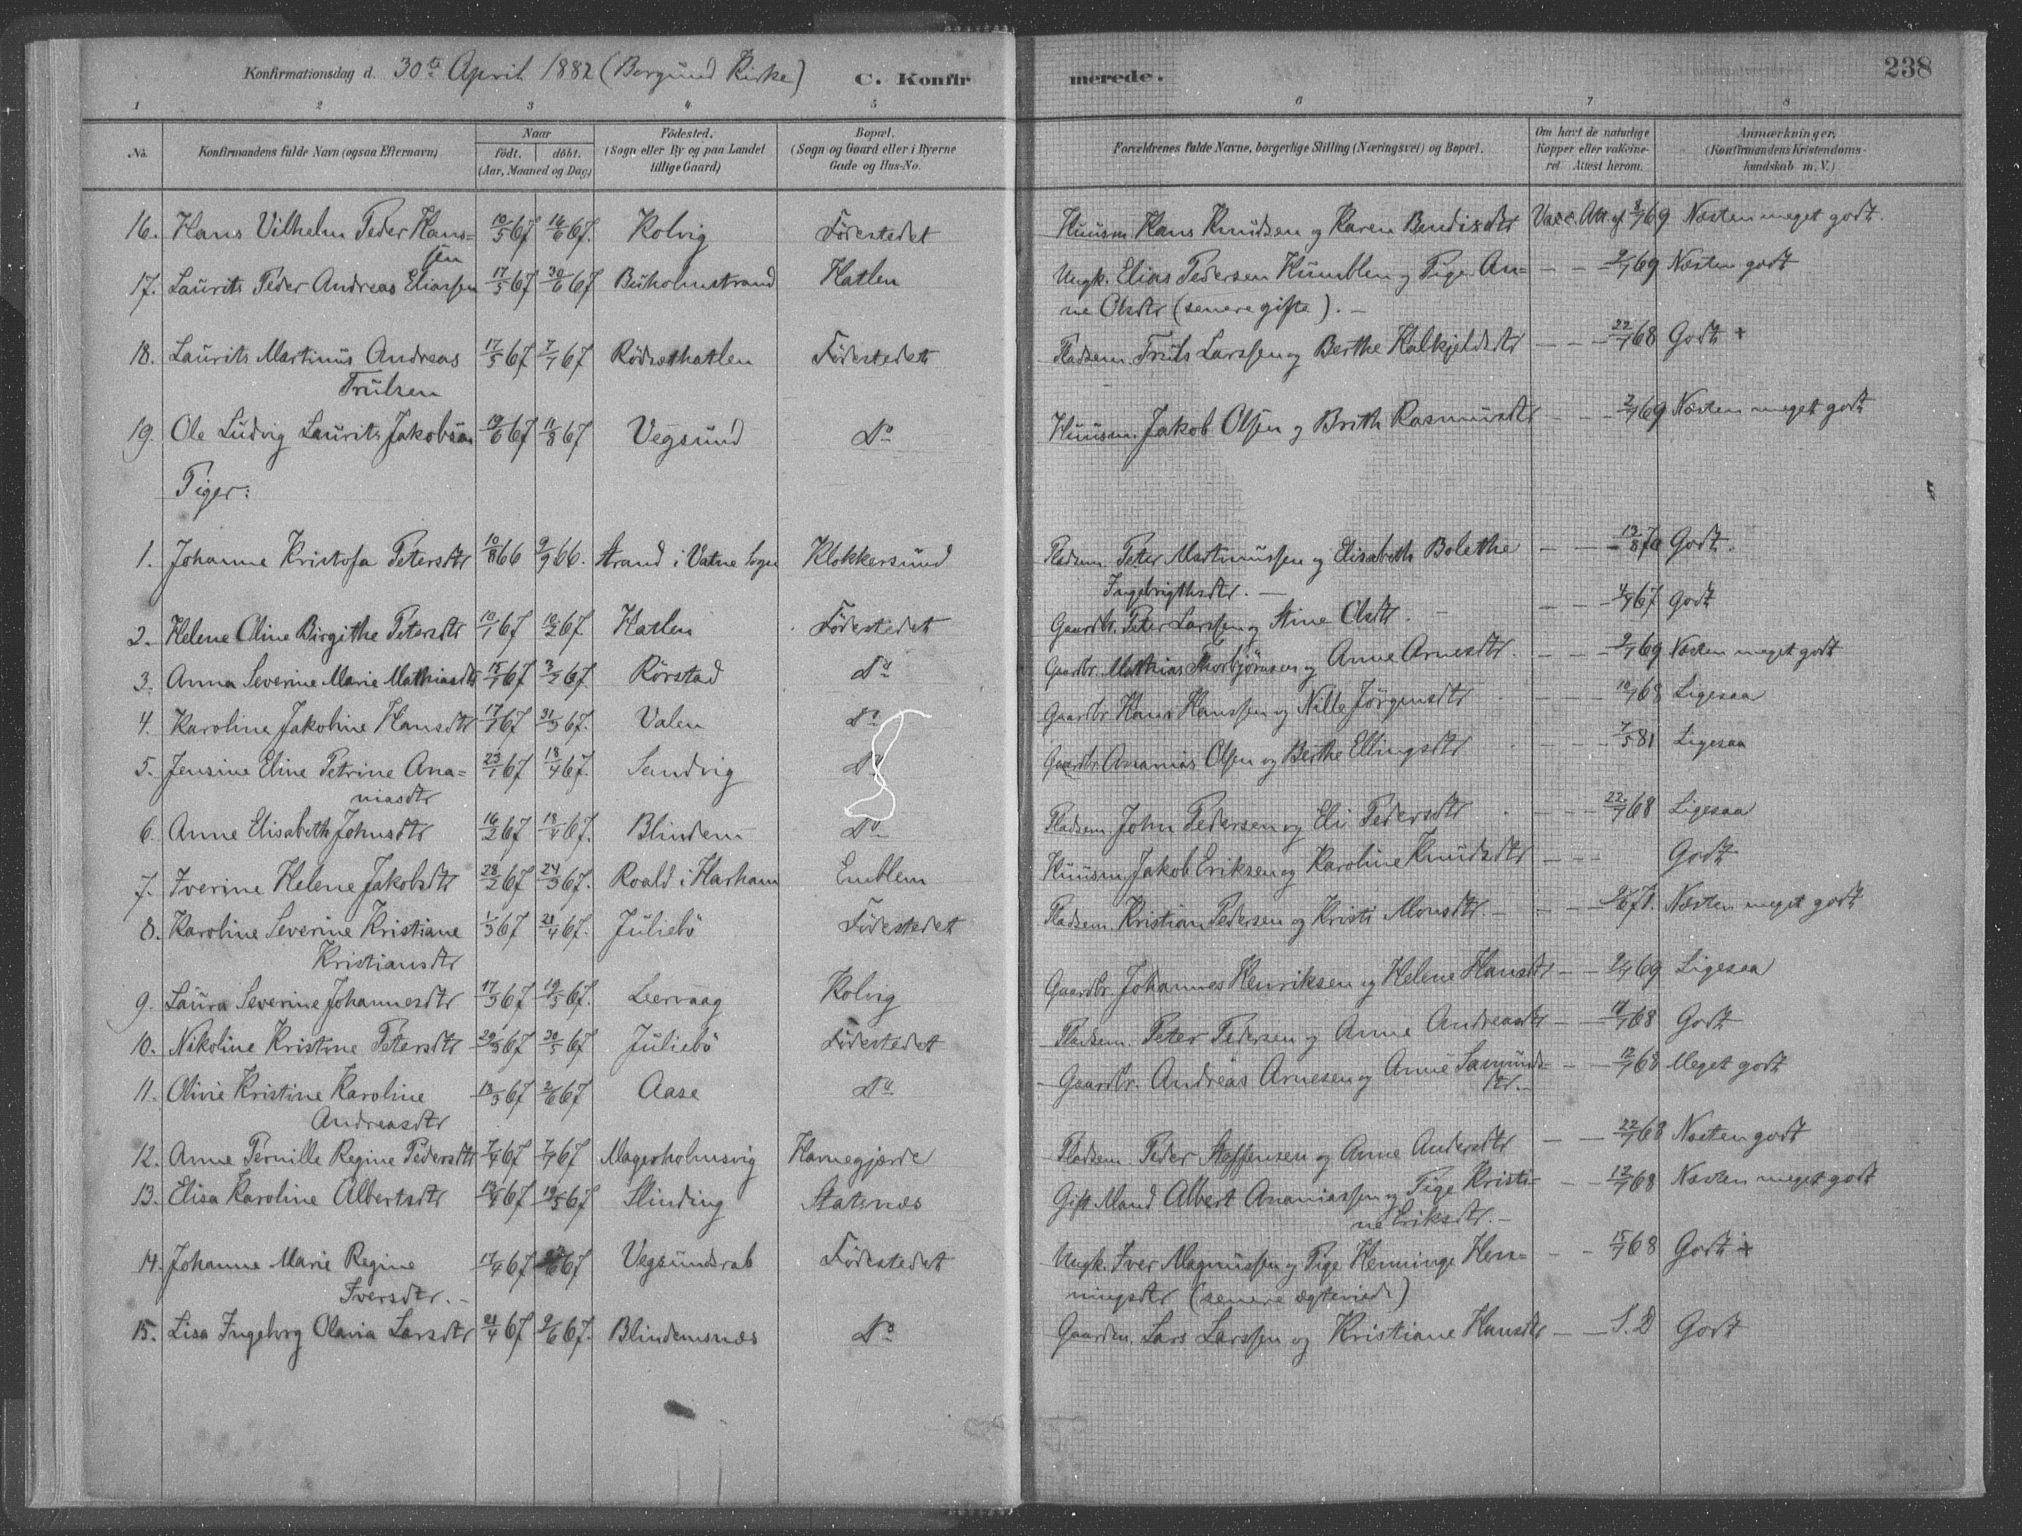 Konfirmationsdag d. 30te April 1882 (Borgund Kirke) C. Konfirmerede. 238
1 2 3 4 5 6 7 8
No. Konfirmandens fulde Navn (ogsaa Efternavn) Naar født. døbt. (Aar, Maaned og Dag) Fødested. (Sogn eller By og paa Landet tillige Gaard) Bopæl. (Sogn og Gaard eller i Byerne Gade og Hus-No. Forældrenes fulde Navne, borgerlige Stilling (Næringsvei) og Bopæl. Om havt de naturlige Kopper eller vakcineret Attest herom. Anmærkninger. (Konfirmandens Kristendomskundskab m. V.)
16. Hans Vilhelm Peder Hans= 10/5 67 16/6 67. Kolvig Fødestedet Huusm. Hans Knudsen og Karen Bendixdtr Vacc. Att. af 8/7 69 Næsten meget godt.
sen
17. Laurits Peder Andreas Eliassen 17/5 67 30/6 67 Buholmstrand Hatlen Ungk. Elias Pedersen Humblen og Pige An= — — 2/7 69 Næsten godt
ne Olsdtr (senere gifte). —
18. Laurits Martinus Andreas 17/5 67 7/7 67 Rödsethatlen Fødestedet Pladsm. Truls Larssen og Berthe Halkjeldsdtr — — 22/7 68 Godt +
Trulsen
19. Ole Ludvig Laurits Jakobsen 19/6 67 11/8 67 Vegsund Do Huusm. Jakob Olsen og Brith Rasmusdtr — — 2/7 69 Næsten meget godt
Piger:
1. Johanne Kristofa Petersdtr 10/8 66 9/9 66. Strand i Vatne Sogn Klokkersund Pladsm. Peter Martinussen og Elisabeth Bolethe — — 13/8 70 Godt.
Ingebrigtsdtr. —
2. Helene Oline Birgithe Petersdtr 10/1 67 10/2 67. Hatlen Fødestedet Gaardbr. Peter Larssen og Stine Olsdtr. — — 4/7 67 Godt
3. Anna Severine Marie Mathiasdtr 15/1 67 3/2 67. Rørstad Do Gaardbr. Mathias Thorbjörnsen og Anne Arnesdtr. — — 2/7 69 Næsten meget godt
4. Karoline Jakobine Hansdtr 17/1 67 31/3 67. Valen Do Gaardbr. Hans Hanssen og Nille Jörgensdtr 10/7 68 Ligesaa
5. Jensine Eline Petrine Ana= 23/1 67 18/4 67. Sandvig Do Gaardbr. Ananias Olsen og Berthe Ellingsdtr 7/5 81 Ligesaa
niasdtr
6. Anne Elisabeth Johnsdtr 16/2 67 18/4 67. Blindem Do Pladsm. John Pedersen og Eli Pedersdtr — — 22/7 68 Ligesaa
7. Iverine Helene Jakobsdtr 28/2 67 24/3 67. Roald i Harham Emblem Huusm. Jakob Eriksen og Karoline Knudsdtr — — — Godt
8. Karoline Severine Kristiane 1/3 67 21/4 67. Juliebö Fødestedet Pladsm. Kristian Pedersen og Kristi Monsdtr. — — 2/6 71. Næsten meget godt
Kristiansdtr
9. Laura Severine Johannesdtr 17/3 67 19/5 67. Leervaag Kolvig Gaardbr. Johannes Henriksen og Helene Hansdtr — — 2/7 69 Ligesaa
10. Nikoline Kristine Petersdtr 29/3 67 30/5 67 Juliebö Fødestedet Pladsm. Peter Pedersen og Anne Andreasdtr — — 12/7 68 Godt
11. Olivie Kristine Karoline 13/3 67 2/6 67 Aase Do Gaardbr. Andreas Arnesen og Anne Samunds= — — 12/7 68 Meget godt
Andreasdtr dtr. —
12. Anne Pernille Regine Pedersdtr 7/4 67 7/7 67 Magerholmsvig Havnegjærde Pladsm. Peder Steffensen og Anne Andersdtr — — 22/7 68 Næsten godt
13. Elisa Karoline Albertsdtr 13/4 67 19/5 67 Slinding Statsnæs Gift Mand Albert Ananiassen og Pige Kristi= — — 12/7 68 Næsten meget godt
ne Eriksdtr. —
14. Johanne Marie Regine 17/4 67 67 Vegsundsrab Fødestedet Ungk. Iver Magnussen og Pige Henninge Hen= — — 15/7 68 Godt +
Iversdtr. — ningsdtr (senere ægteviede)
15. Lisa Ingeborg Olavia Larsdtr 21/4 67 2/6 67. Blindemsnæs Do Gaardm. Lars Larssen og Kristiane Hansdtr — — S. D Godt